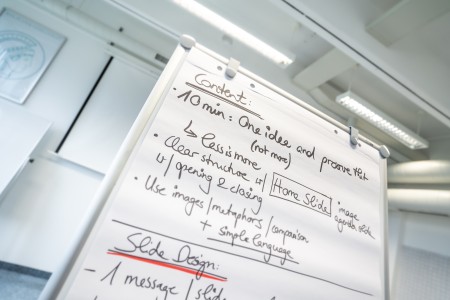 Content:
• 10 min: One idea and preserve that
↳ less is more (not more)
• Clear structure w/ Home Slide image agenda slide
w/ opening & closing
• Use images/metaphors/comparison
+ simple language
Slide Design:
- 1 message / slide